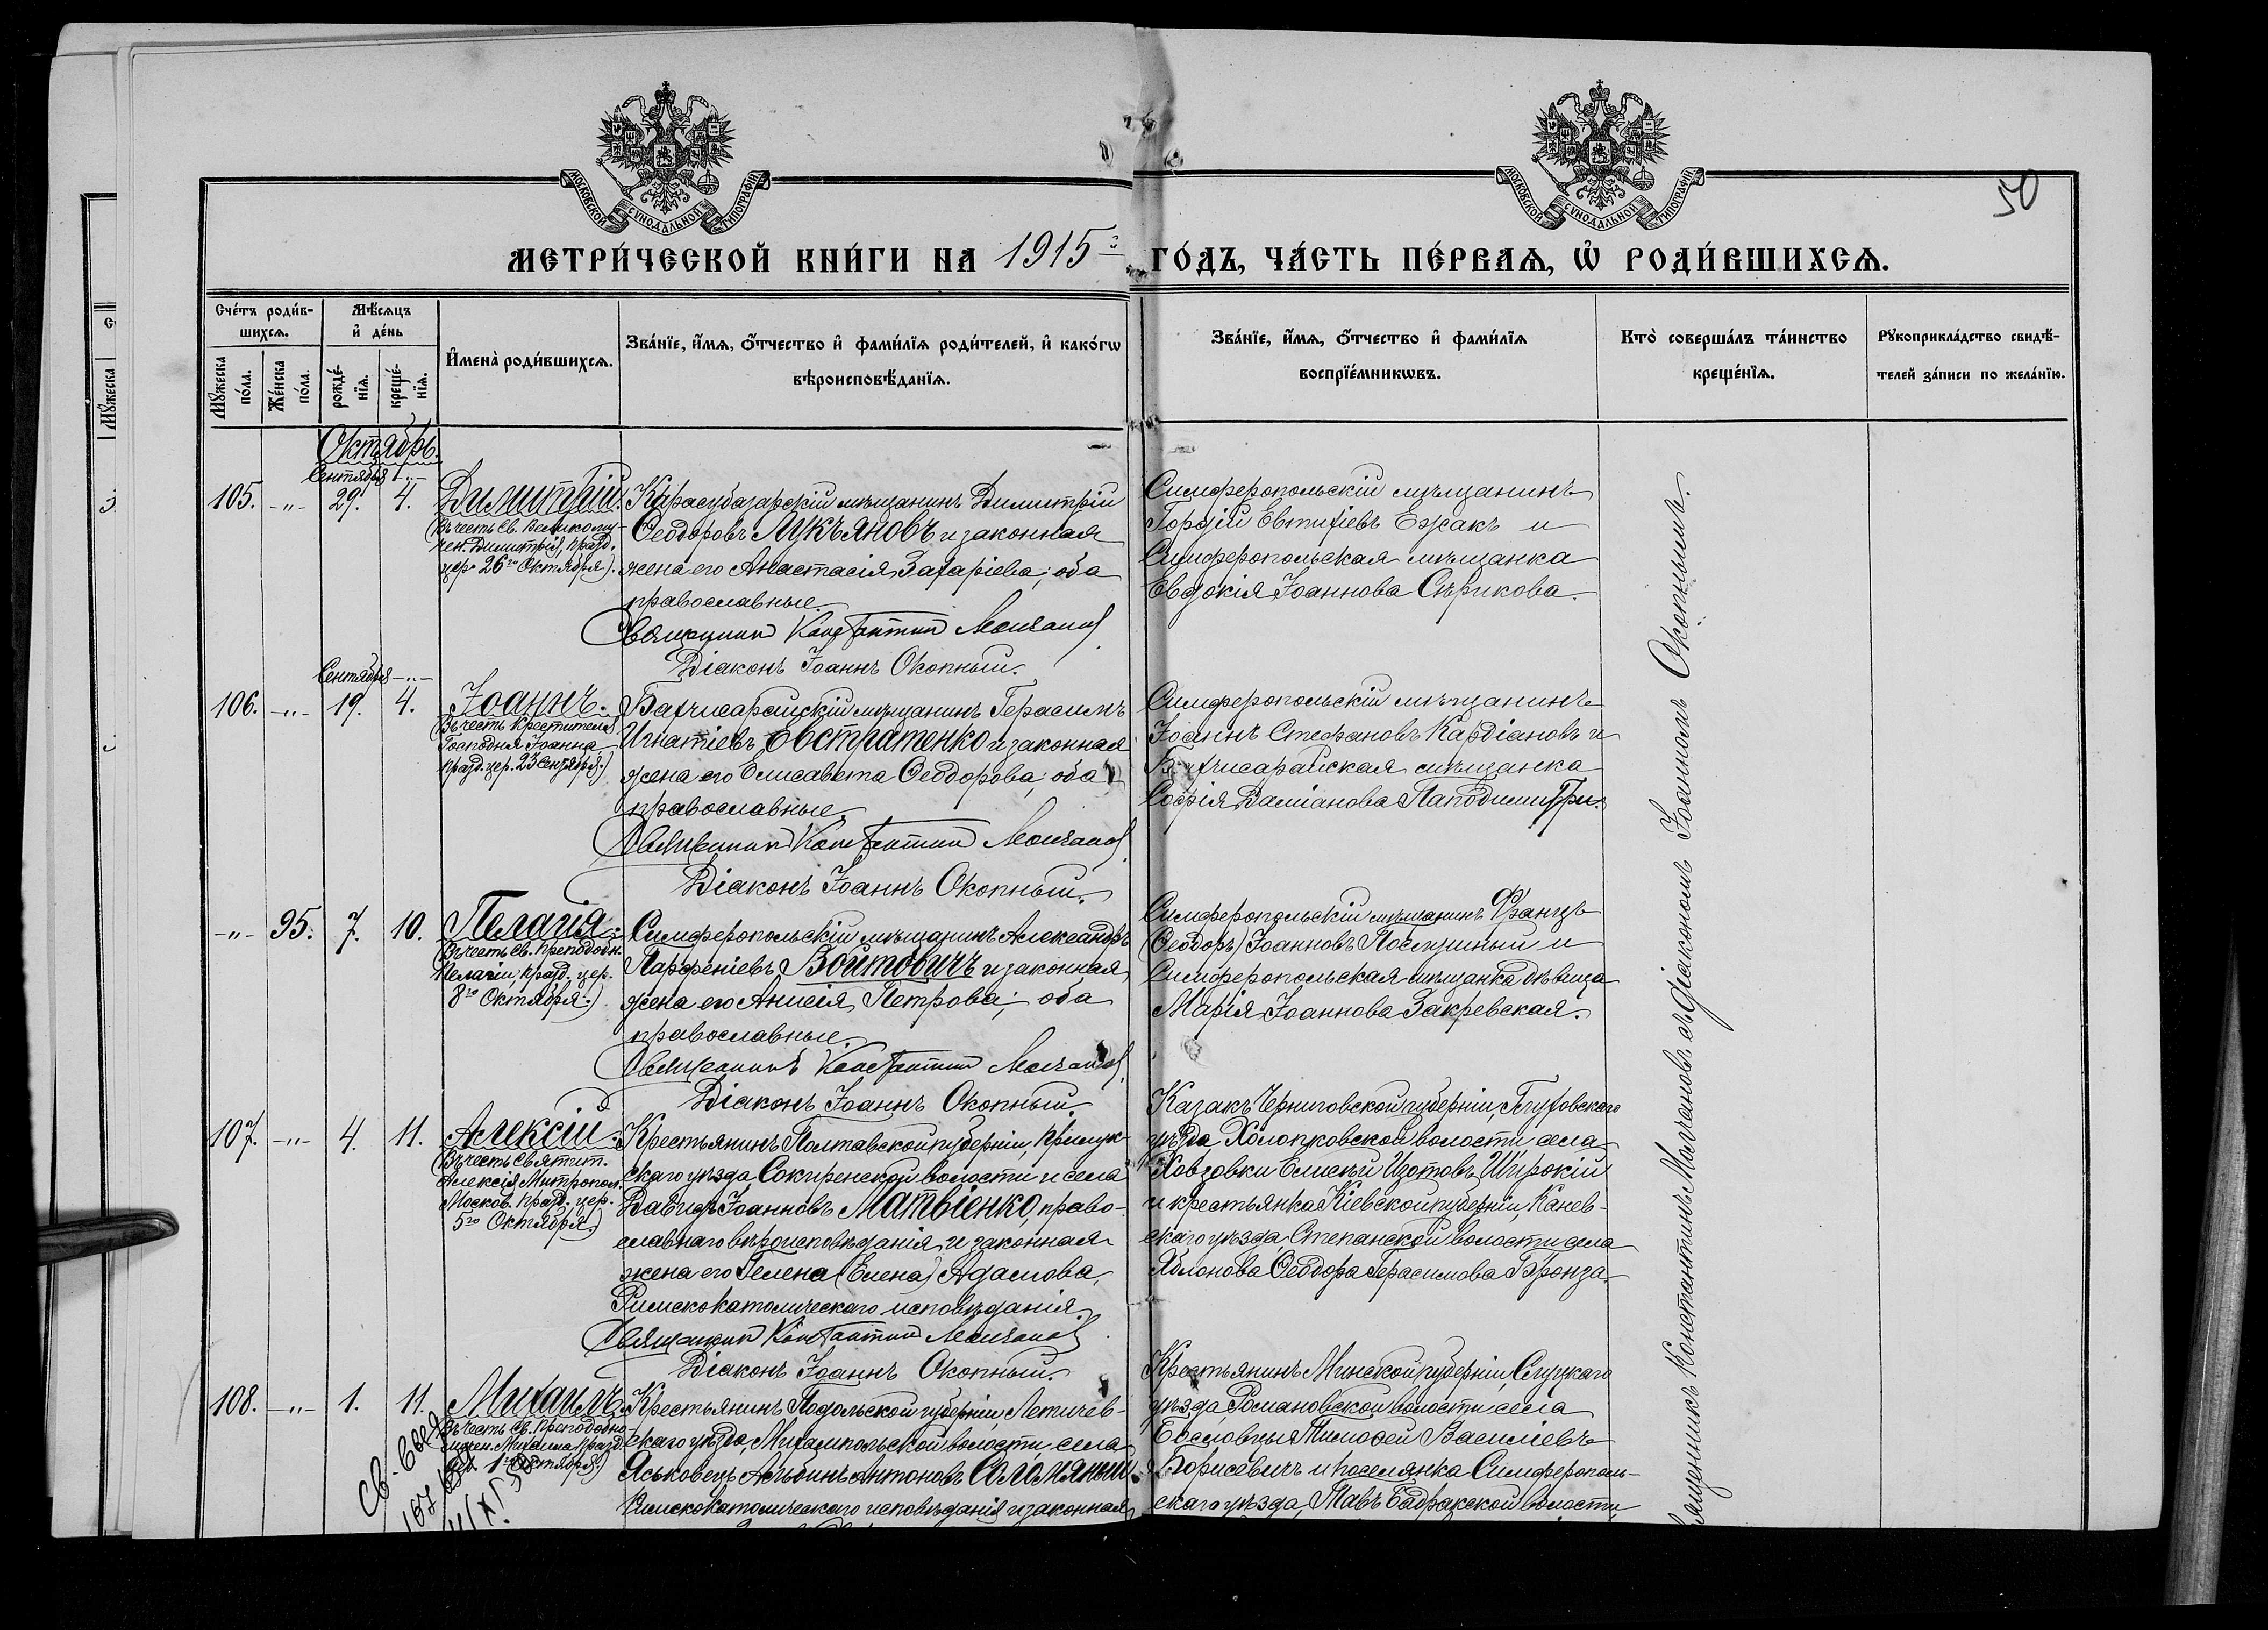 МОСКОВСКОЙ СѴНОДАЛЬНОЙ ТИПОГРАФІИ
МОСКОВСКОЙ СѴНОДАЛЬНОЙ ТИПОГРАФІИ
50
МЕТРИ́ЧЕСКОЙ КНИ́ГИ НА 1915 г
ГО́ДЪ, ЧА́СТЬ ПЕ́РВАѦ, Ѡ҆ РОДИ́ВШИХСѦ.
Сче́тъ роди́в-
шихсѧ.
Мѣ́сѧцъ
и҆ де́нь
Мꙋ́жеска по́ла.
Же́нска по́ла.
рожде́-
нїѧ.
креще́-
нїѧ.
И҆мена̀ роди́вшихсѧ.
Зва́нїе, и҆́мѧ, ѻ҆́тчество и҆ фами́лїѧ роди́телей, и҆ како́гѡ
вѣроисповѣ́данїѧ.
Зва́нїе, и҆́мѧ, ѻ҆́тчество и҆ фами́лїѧ
воспрїе́мникѡвъ.
Кто̀ соверша́лъ та́инство
креще́нїѧ.
Рꙋкоприкла́дство свидѣ́-
телей за́писи по жела́нїю.
Октябрь.
Сентября -"-
105. -"- 29. 4.
Димитрій.
(Въ честь Св. Великому-
чен. Димитрія, празд.
цер. 26го Октября).
Карасубазарскій мѣщанинъ Димитрій
Ѳеодоровъ Лукьяновъ и законная
жена его Анастасія Захаріева; оба
православные.
Священникъ Константинъ Молчановъ.
Діаконъ Іоаннъ Окопный.
Симферопольскій мѣщанинъ
Гордій Евтихіевъ Ежакъ и
Симферопольская мѣщанка
Евдокія Іоаннова Сѣрикова.
Сентября -"-
106. -"- 19. 4.
Іоаннъ.
(Въ честь Крестителя
Господня Іоанна,
празд. цер. 23 Сентября.)
Бахчисарайскій мѣщанинъ Герасимъ
Игнатіевъ Евстратенко и законная
жена его Елисавета Ѳеодорова; оба
православные.
Священникъ Константинъ Молчановъ.
Діаконъ Іоаннъ Окопный.
Симферопольскій мѣщанинъ
Іоаннъ Стефановъ Кардіановъ и
Бахчисарайская мѣщанка
Софія Даміанова Паподимитри.
-"- 95. 7. 10.
Пелагія.
(Въ честь Св. Преподобн.
Пелагіи, празд. цер.
8го Октября.)
Симферопольскій мѣщанинъ Александръ
Парфеніевъ Войтовичъ и законная
жена его Анисія Петрова; оба
православные.
Священникъ Константинъ Молчановъ.
Діаконъ Іоаннъ Окопный.
Симферопольскій мѣщанинъ Францъ
(Ѳеодоръ) Іоанновъ Послушный и
Симферопольская мѣщанка дѣвица
Марія Іоаннова Закревская.
107. -"- 4. 11.
Алексій.
(Въ честь Святит.
Алексія Митропол.
Москов. празд. цер.
5го Октября)
Крестьянинъ Полтавской губерніи, Прилук-
скаго уѣзда, Сокиренской волости и села
Давидъ Іоанновъ Матвіенко, право-
славнаго вѣроисповѣданія и законная
жена его Гелена (Елена) Адамова,
Римскокатолическаго исповѣданія.
Священникъ Константинъ Молчановъ.
Діаконъ Іоаннъ Окопный.
Казакъ Черниговской губерніи, Глуховскаго
уѣзда, Холопковской волости села
Ховзовки Елисей Изотовъ Широкій
и крестьянка Кіевской губерніи, Канев-
скаго уѣзда, Степанской волости села
Яблонова Ѳеодора Герасимова Бронза.
108. -"- 1. 11.
Михаилъ.
(Въ честь Св. Преподобно-
мучен. Михаила, празд.
цер. 1го Октября.)
Крестьянинъ Подольской губерніи Летичев-
скаго уѣзда, Михампольской волости, села
Яськовецъ Альбинъ Антоновъ Соломяный,
Римскокатолическаго исповѣданія и законная
Крестьянинъ Минской губерніи, Слуцкаго
уѣзда, Романовской волости села
Тимоѳей Василіевъ
Борисевичъ и поселянка Симферополь-
скаго уѣзда, Тавъ-Бадракской волости,
Священникъ Константинъ Молчановъ съ діакономъ Іоанномъ Окопнымъ.